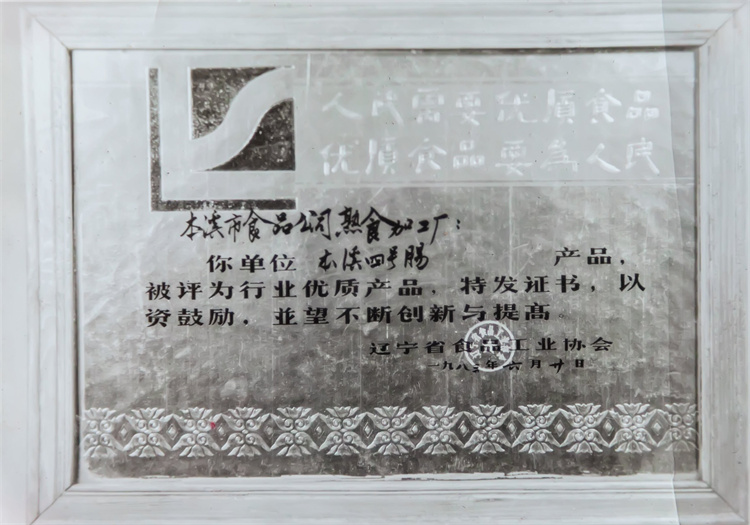 人民需要优质食品
优质食品要为人民
本溪市食品公司熟食加工厂：
你单位 本溪四号肠 产品，
被评为行业优质产品，特发证书，以
资鼓励，並望不断创新与提高。
辽宁省食品工业协会
一九八 年六月廿日